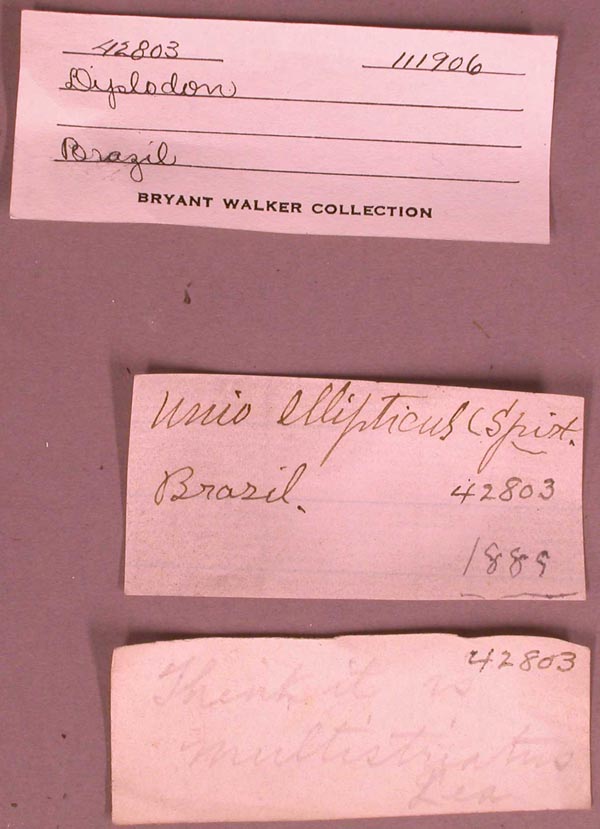 42803 111906
Diplodon
Brazil
BRYANT WALKER COLLECTION
Unio ellipticus (Spix.
Brazil. 42803
1889
42803
Think it is
multistriatus
Lea